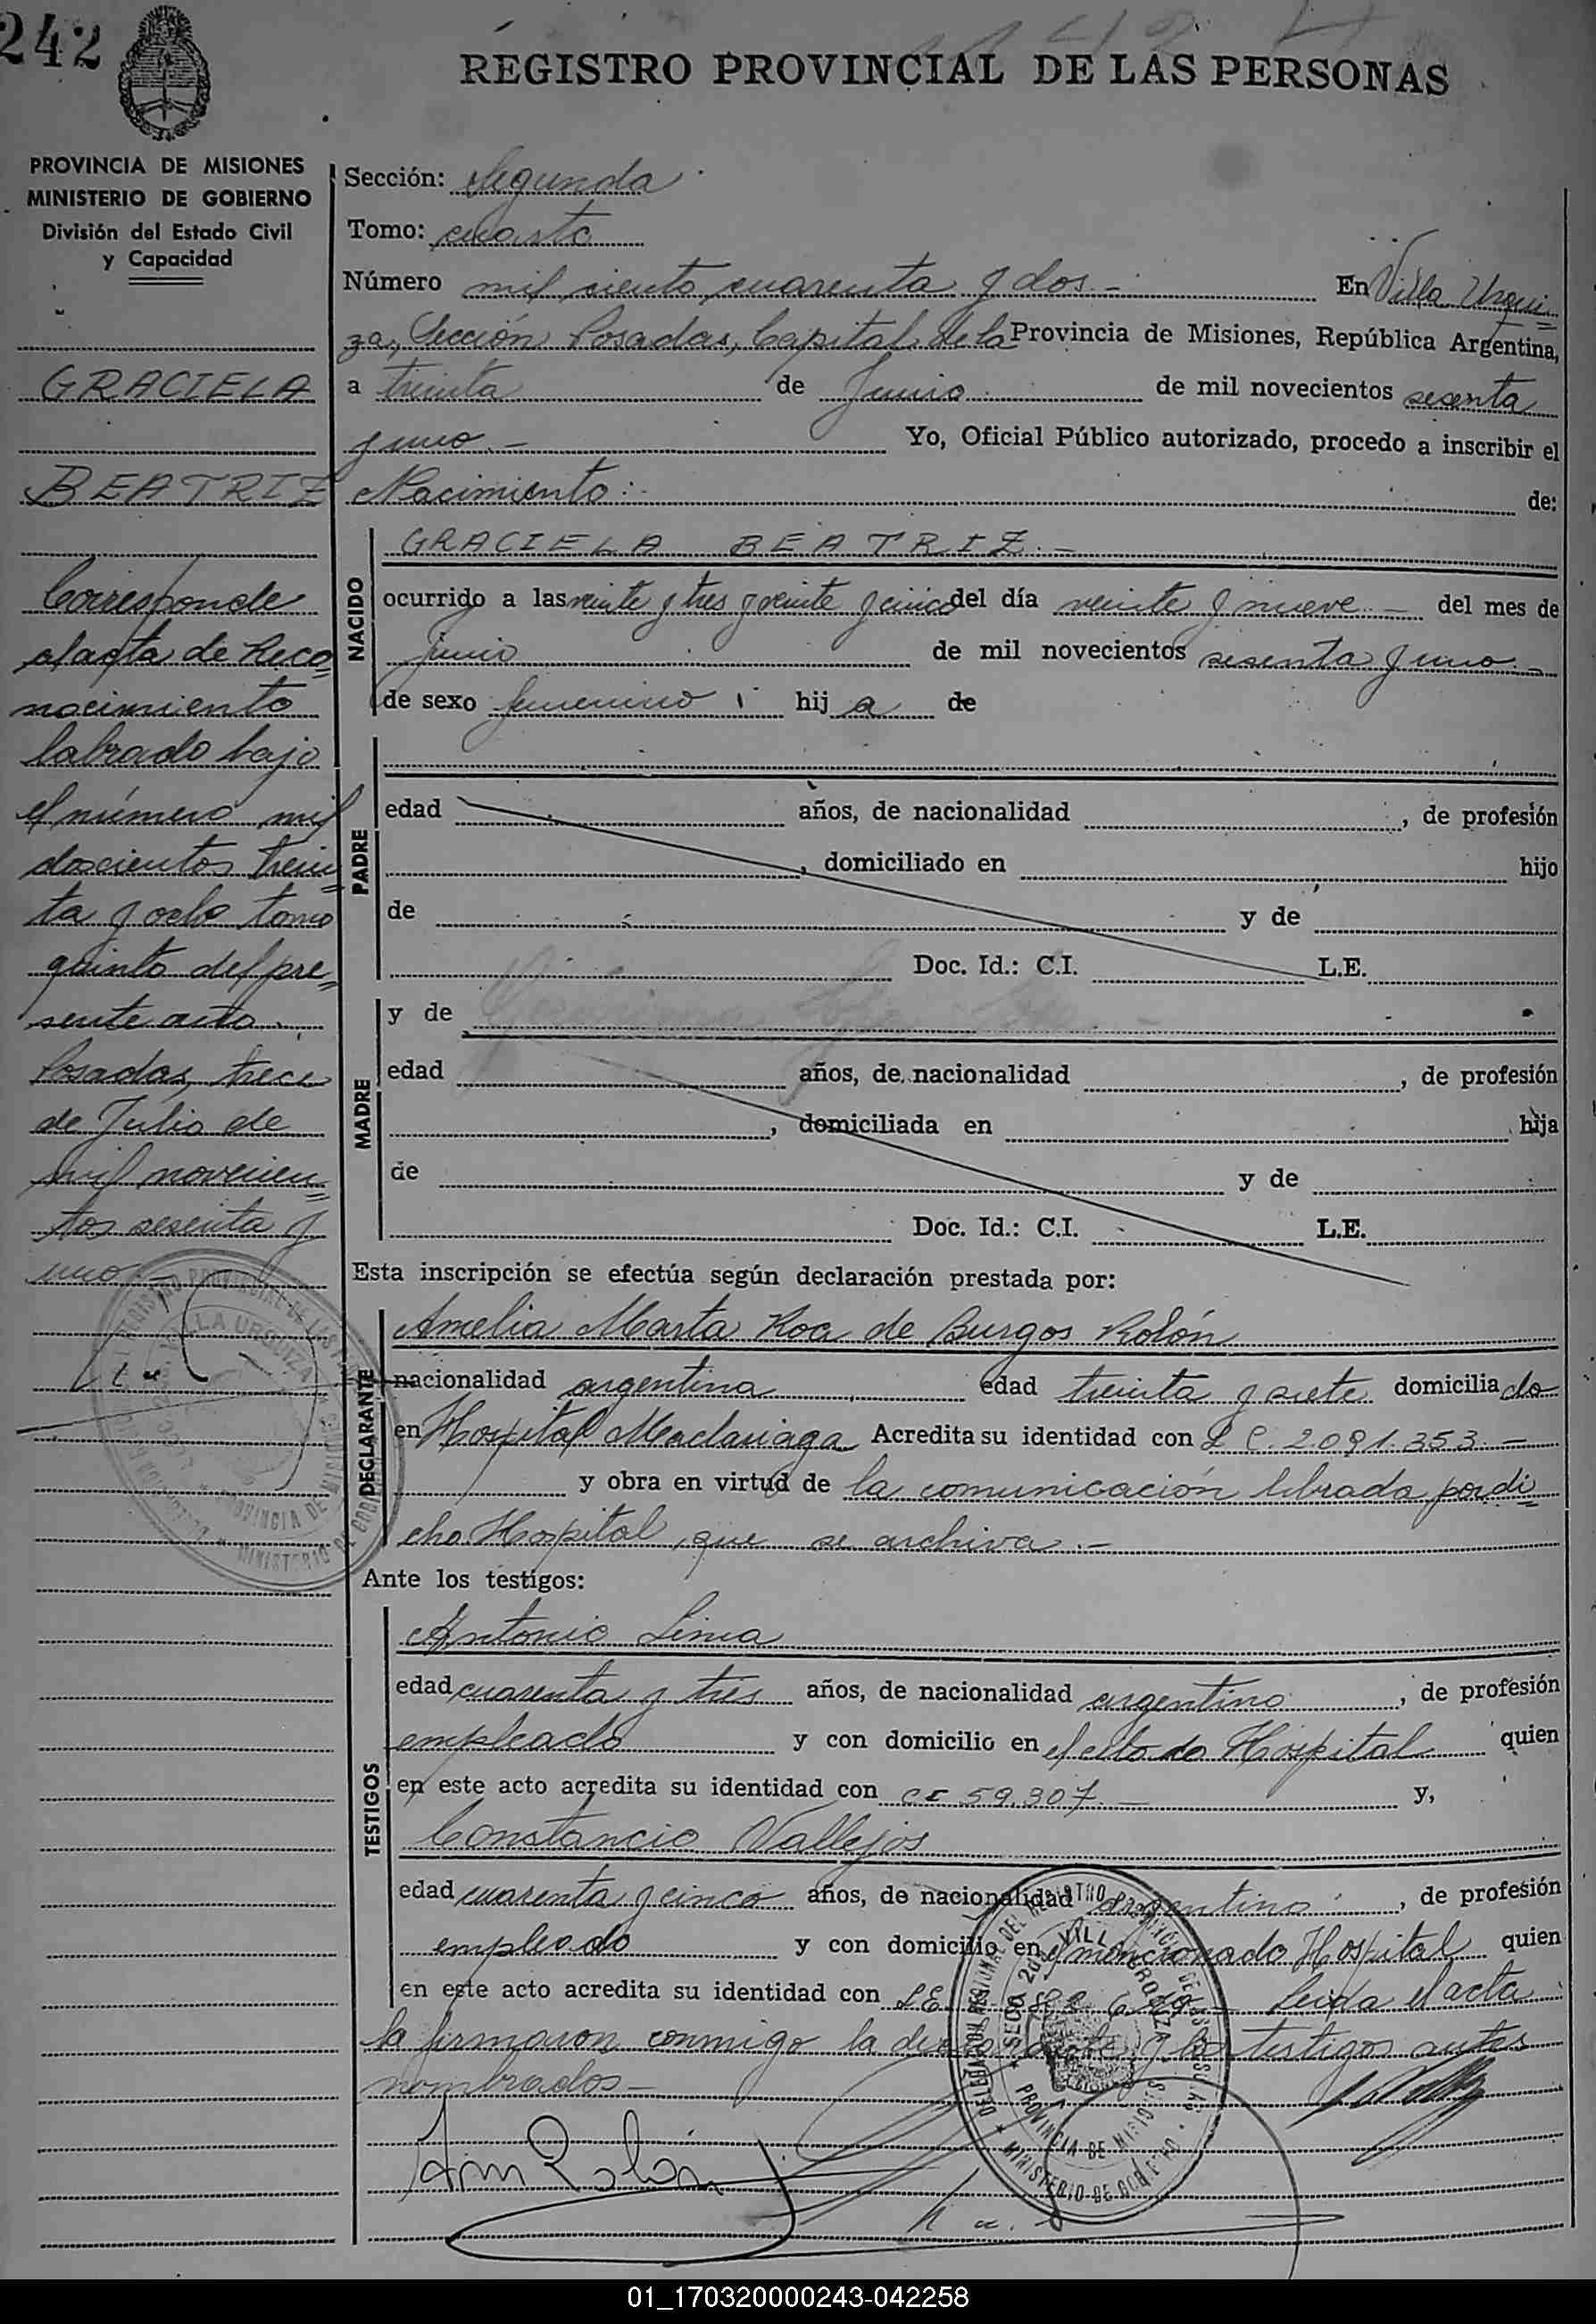 242
REGISTRO PROVINCIAL DE LAS PERSONAS
PROVINCIA DE MISIONES
MINISTERIO DE GOBIERNO
División del Estado Civil
y Capacidad
GRACIELA
BEATRIZ
Corresponde
al acta de Reco=
nocimiento
labrado bajo
el número mil
doscientos trein=
ta y ocho tomo
quinto del pre=
sente año.
Posadas, trece
de Julio de
mil novecien=
tos sesenta y
uno -
Sección: Segunda
Tomo: cuarto
Número mil ciento cuarenta y dos.- En Villa Urqui=
za, Sección Posadas, Capital de la Provincia de Misiones, República Argentina,
a treinta de Junio de mil novecientos sesenta
y uno.- Yo, Oficial Público autorizado, procedo a inscribir el
Nacimiento:. de:
NACIDO
GRACIELA BEATRIZ.-
ocurrido a las veinte y tres y veinte y cinco del día veinte y nueve.- del mes de
junio de mil novecientos sesenta y uno.-
de sexo femenino ; hij a de
PADRE
edad años, de nacionalidad , de profesión
, domiciliado en hijo
de y de
Doc. Id.: C.I. L.E.
MADRE
y de
edad años, de nacionalidad , de profesión
, domiciliada en hija
de y de
Doc. Id.: C.I. L.E.
Esta inscripción se efectúa según declaración prestada por:
DECLARANTE
Amelia Marta Roa de Burgos Rolón
nacionalidad argentina edad treinta y siete domicilia da
en Hospital Madariaga Acredita su identidad con L C. 2.091.353.-
y obra en virtud de la comunicación librada por di=
cho Hospital, que se archiva.-
Ante los testigos:
TESTIGOS
Antonio Lima
edad cuarenta y tres años, de nacionalidad argentino , de profesión
empleado y con domicilio en el citado Hospital quien
en este acto acredita su identidad con CI 59.307.- y,
Constancio Vallejos
edad cuarenta y cinco años, de nacionalidad argentino , de profesión
empleado y con domicilio en el mencionado Hospital quien
en este acto acredita su identidad con LE. Leída el acta
la firmaron conmigo la declarante y los testigos antes
nombrados-
01_170320000243-042258